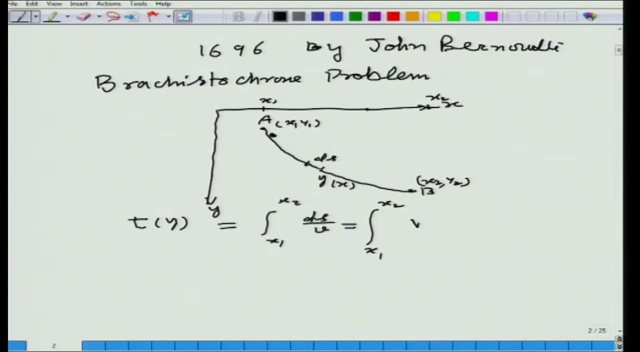 Edit View Insert Actions Tools Help
1696 By John Bernoulli
Brachistochrone Problem
x₁ x₂ x
A (x₁, y₁)
ds
y(x)
(x₂, y₂)
B
y
t(y) = ∫_{x₁}^{x₂} ds/v = ∫_{x₁}^{x₂} v
2 / 25
2